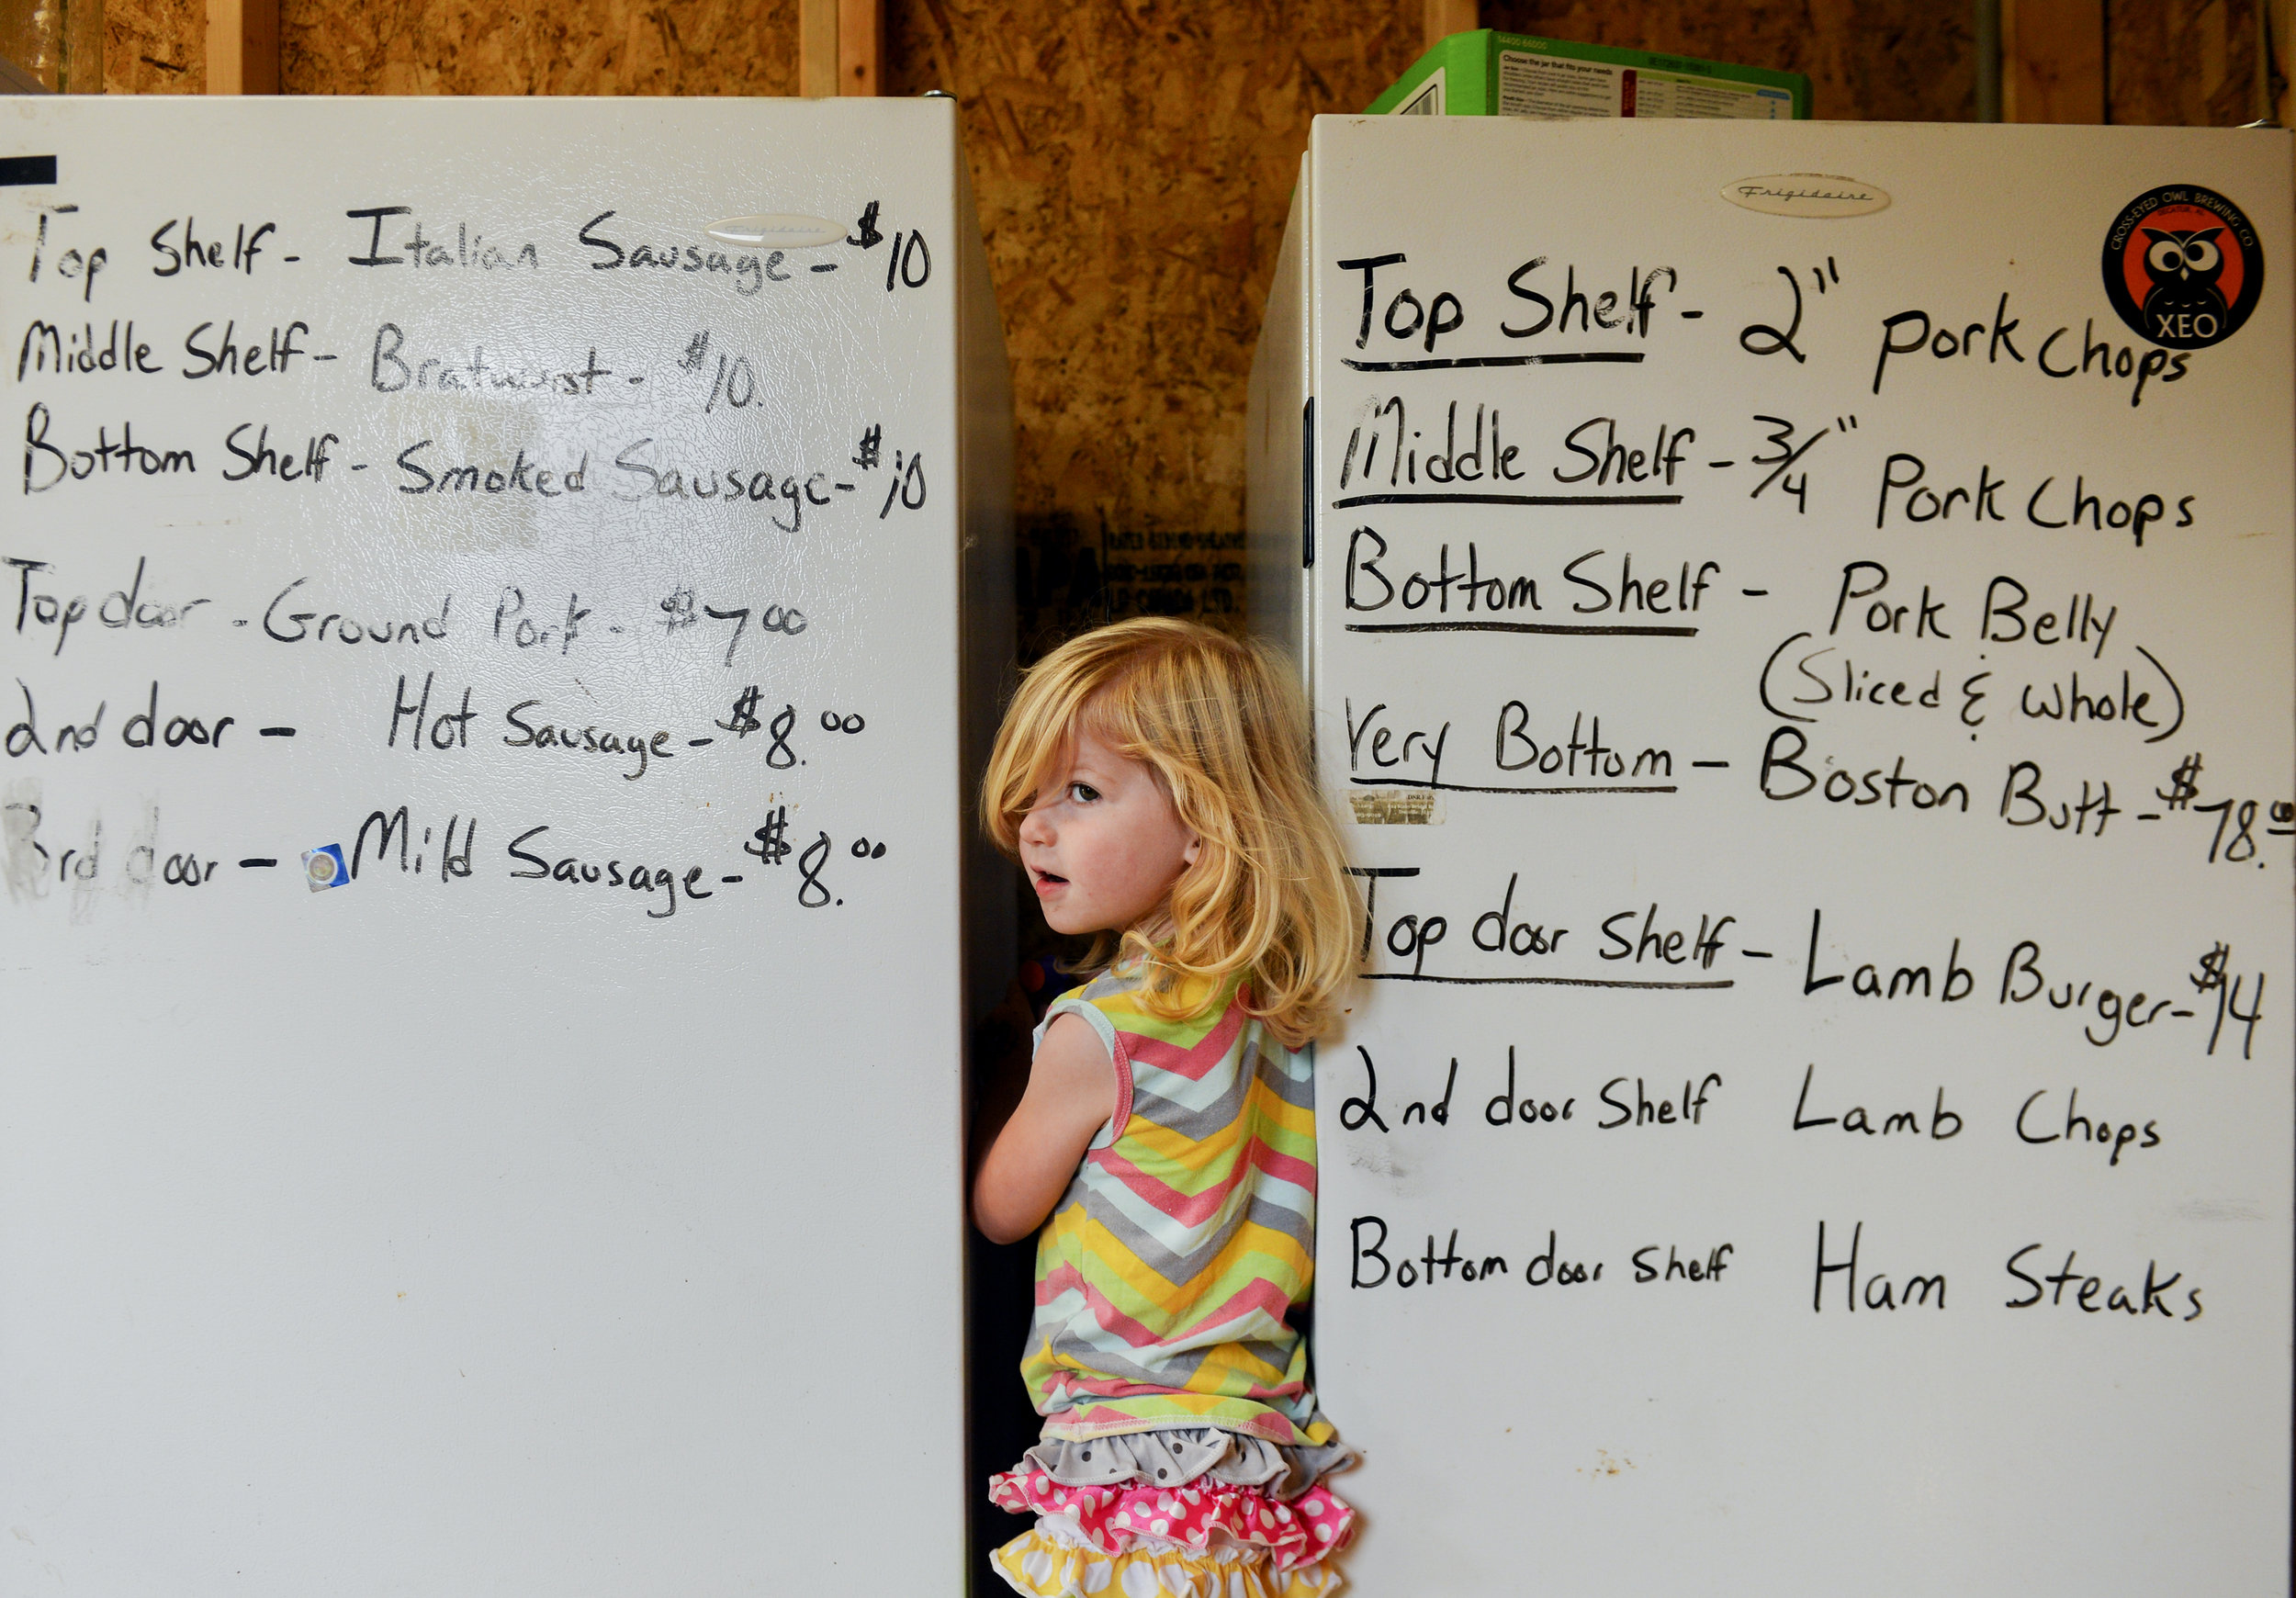 Top Shelf - Italian Sausage - $10
Middle Shelf - Bratwurst - $10.
Bottom Shelf - Smoked Sausage - $10
Top door - Ground Pork - $7 00
2nd door - Hot Sausage - $8.00
3rd door - Mild Sausage - $8.00
Frigidaire
14400-66000
Choose the jar that fits your needs
Frigidaire
CROSS-EYED OWL BREWING CO
XEO
Top Shelf - 2" Pork Chops
Middle Shelf - 3/4" Pork Chops
Bottom Shelf - Pork Belly
(Sliced & Whole)
Very Bottom - Boston Butt - $78.00
Top door Shelf - Lamb Burger - $14
2nd door Shelf Lamb Chops
Bottom door Shelf Ham Steaks